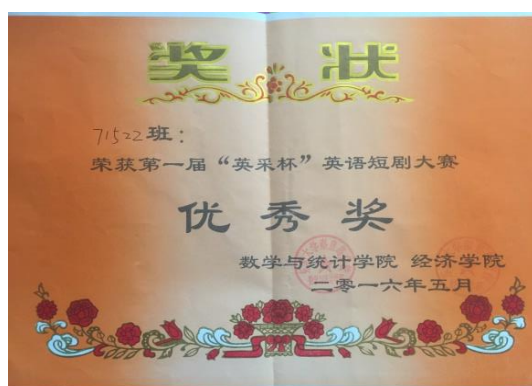 奖状
71522班：
荣获第一届“英采杯”英语短剧大赛
优秀奖
数学与统计学院 经济学院
二零一六年五月